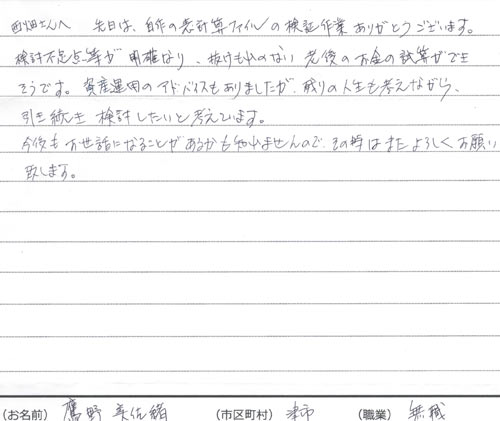 西畑さんへ 先日は、自作の表計算ファイルの検証作業ありがとうございます。
検討不足点等が明確なり、抜けもれのない老後のお金の試算ができ
そうです。資産運用のアドバイスもありましたが、残りの人生も考えながら、
引き続き検討したいと考えています。
今後もお世話になることがあるかも知れませんので、その時はまたよろしくお願い
致します。
(お名前) 鷹野 美佐緒 (市区町村) 津市 (職業) 無職